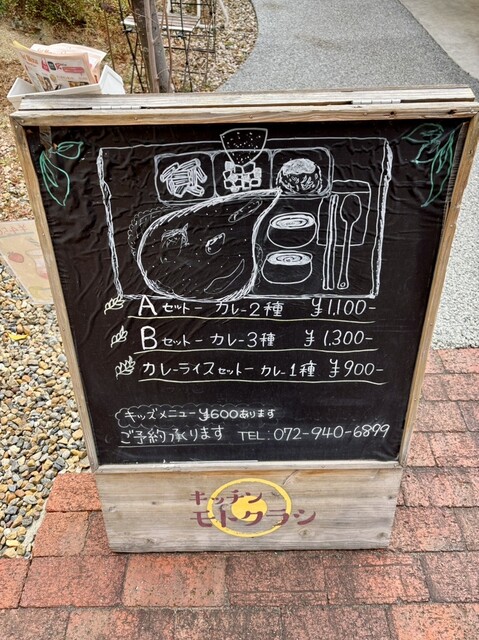 Aセットー カレー2種 ¥1,100-
Bセットー カレー3種 ¥1,300-
カレーライスセットー カレー1種 ¥900-
キッズメニュー¥600あります
ご予約承ります TEL:072-940-6899
キッチン
モトクラシ